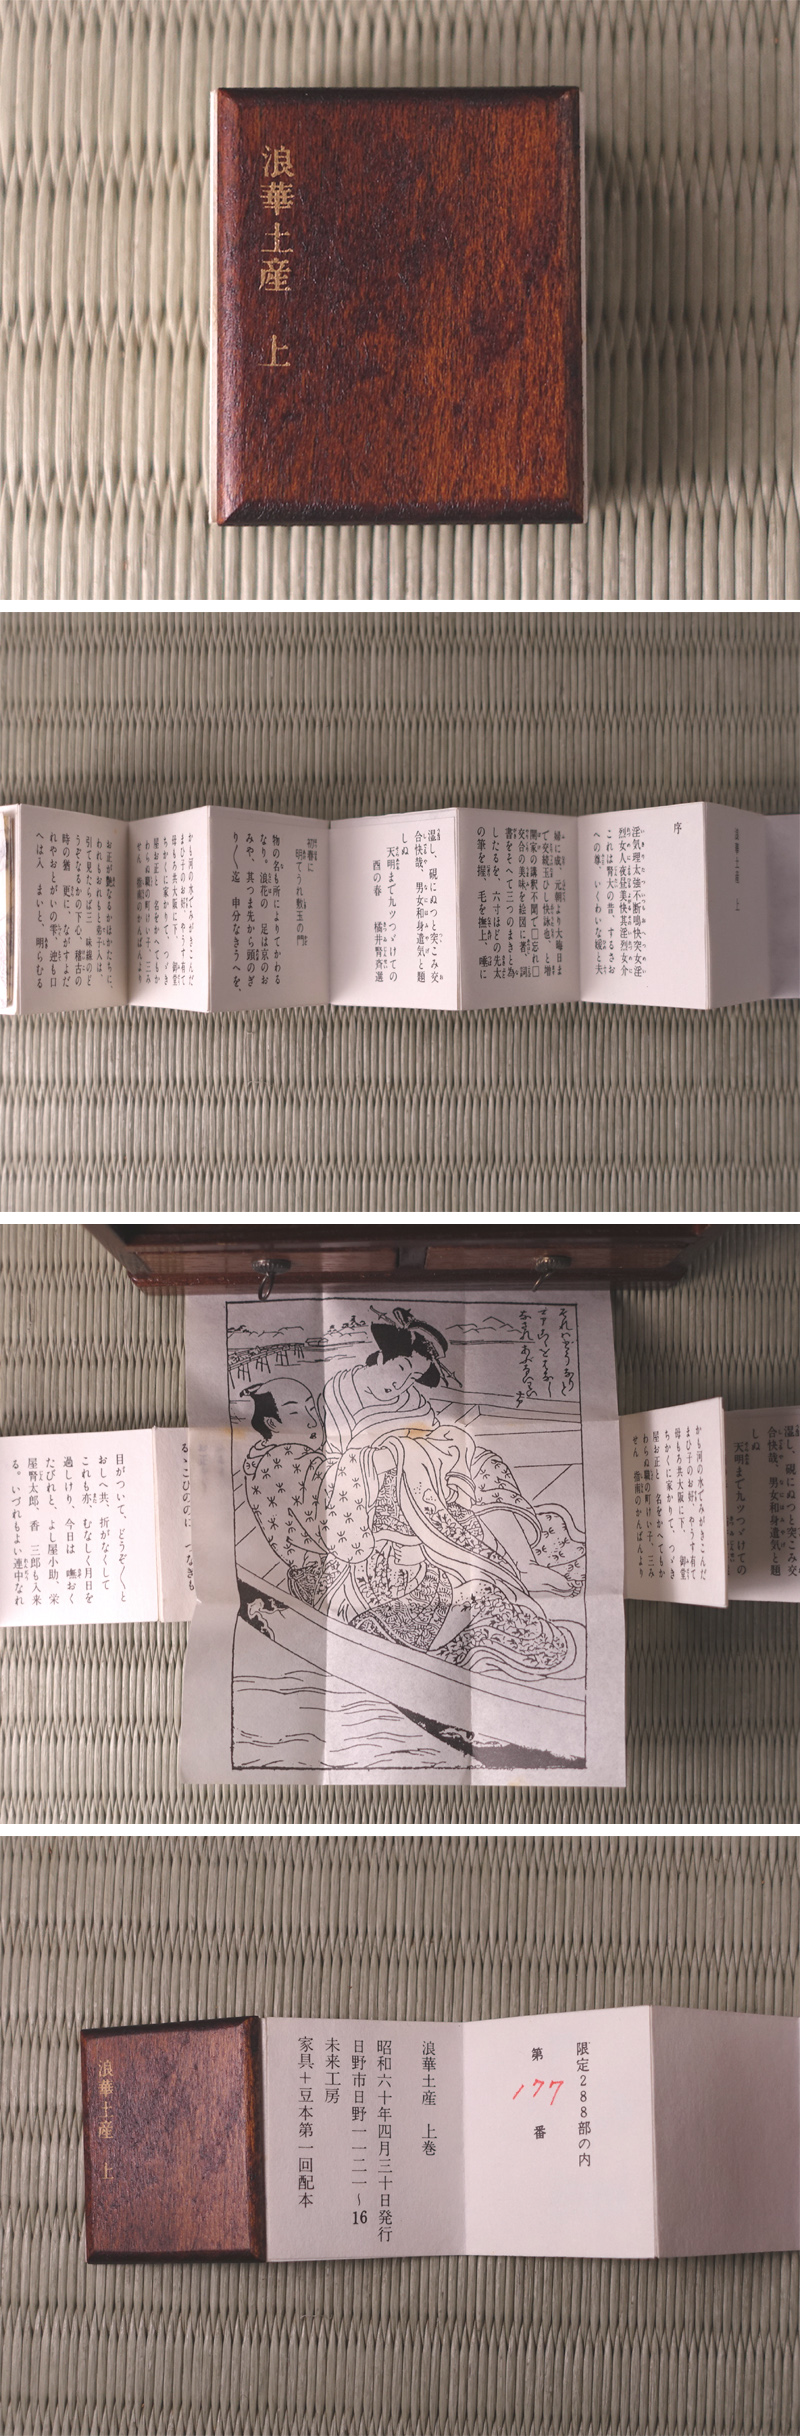 浪華土産　上
浪華土産　上
序
淫気理太強不断鳴快突女淫
烈女人夜昼美快其淫烈女介
これは腎大の昔、するさお
への尊、いくわいな媛と夫
婦に成、元朝より大晦日ま
で交続玉ひし快詠也、と増
開家の講釈不聞で□忘れ□
交合の美味を絵図に著、詞
書をそへて三つのまきと為
したるを、六寸ほどの先太
の筆を握、毛を撫上、唾に
湿し、硯にぬつと突こみ交
合快哉、男女和身遣気と題
しぬ
天明まで九ツつゞけての
酉の春　橘井腎斉選
初春に
明てうれ敷玉の門
物の名も所によりてかわる
なり。浪花の　足は京のお
みや、其つま先から頭のぎ
り〱迄　申分なきうへを、
かも河の水でみがきこんだ
まひ子のお好、やうす有て
母もろ共大阪に下、御堂
ちかくに家かりて、つゞき
屋お正と　名をかへてもか
わらぬ職の町けい子、三み
せん　指南のかんばんより
お正が艶なるかほかたちに、
われもおれもと弟子入は、
引て見たらば三　味線のど
うぞなるかの下心、稽古の
時の猶　更に、ながすよだ
れやおとがいの雫、迚も口
へは入　まいと、明らむる
かも河の水でみがきこんだ
まひ子のお好、やうす有て
母もろ共大阪に下、御堂
ちかくに家かりて、つゞき
屋お正と　名をかへてもか
わらぬ職の町けい子、三み
せん　指南のかんばんより
湿し、硯にぬつと突こみ交
合快哉、男女和身遣気と題
しぬ
天明まで九ツつゞけての
るゝこひのの に　つなきも
目がついて、どうぞ〱と
おしへ共、折がなくして
これも亦、むなしく月日を
過しけり、今日は　噺おく
たびれと、よし屋小助、栄
屋腎太郎、香　三郎も入来
る。いづれもよい連中なれ
浪華土産　上
限定288部の内
第
177
番
浪華土産　上巻
昭和六十年四月三十日発行
日野市日野一一二一〜16
未来工房
家具＋豆本第一回配本